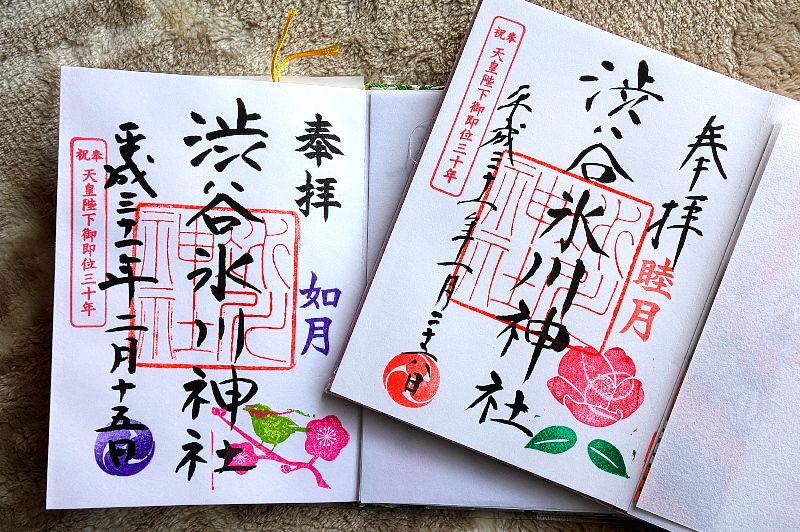 奉拝
如月
渋谷氷川神社
平成三十一年二月十五日
奉祝 天皇陛下御即位三十年
奉拝
睦月
渋谷氷川神社
平成三十一年一月二十八日
奉祝 天皇陛下御即位三十年